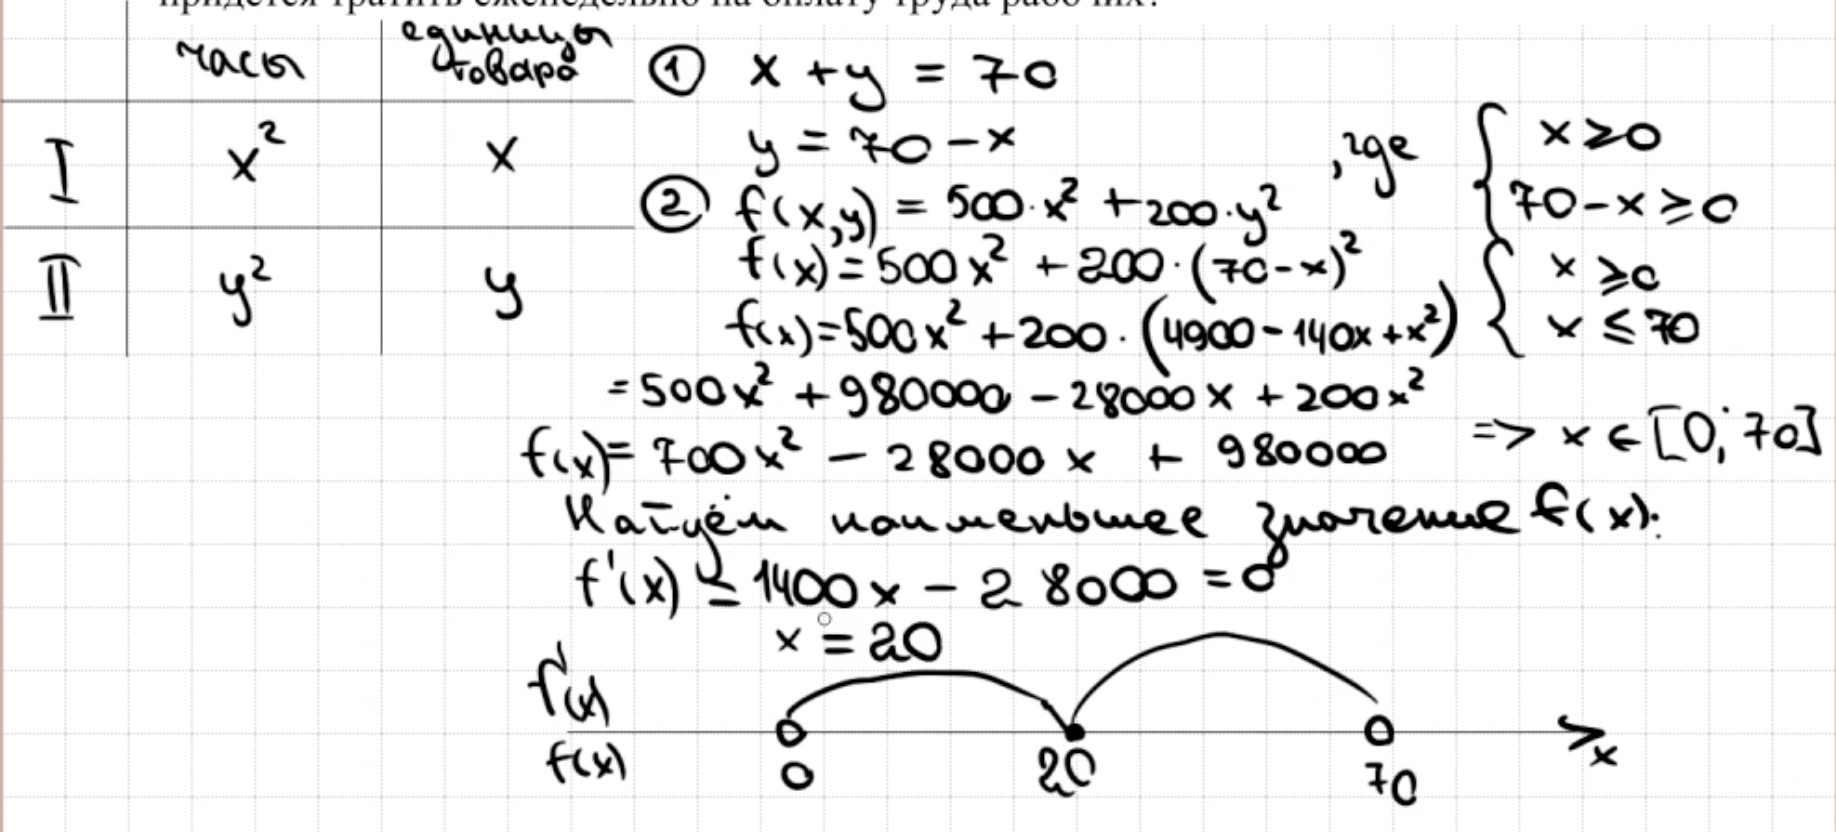 придётся тратить еженедельно на оплату труда рабочих?
часы
единицы товара
I x² x
II y² y
① x + y = 70
y = 70 - x
② f(x,y) = 500·x² + 200·y²
f(x) = 500x² + 200·(70-x)²
f(x) = 500x² + 200·(4900 - 140x + x²)
= 500x² + 980000 - 28000x + 200x²
f(x) = 700x² - 28000x + 980000
, где { x ≥ 0
70 - x ≥ 0
{ x ≥ 0
x ≤ 70
=> x ∈ [0; 70]
Найдём наименьшее значение f(x).
f'(x) = 1400x - 28000 = 0
x = 20
f'(x)
f(x) 0 20 70 x